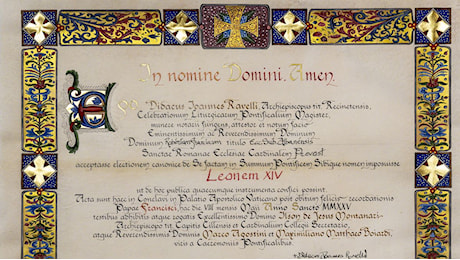 In nomine Domini, Amen
Ego Didacus Ioannes Ravelli, Archiepiscopus tit. Recinetensis,
Celebrationum Liturgicarum Pontificalium Magister,
munere notarii fungens, attestor et notum facio
Eminentissimum ac Reverendissimum Dominum
Dominum titulo
Sanctae Romanae Ecclesiae Cardinalem Prevost
acceptasse electionem canonice de Se factam in Summum Pontificem Sibique nomen imposuisse
Leonem XIV
ut de hoc publica quaecumque instrumenta confici possint.
Acta sunt haec in Conclavi in Palatio Apostolico Vaticano post obitum felicis recordationis
Papae Francisci, hac die VIII mensis Maii Anno Sancto MMXXV
testibus adhibitis atque rogatis Excellentissimo Domino Ilson de Jesus Montanari
Archiepiscopo tit. Capitis Cillensis et Cardinalium Collegii Secretario,
atque Reverendissimis Dominis Marco Agostini et Maximiliano Matthaeo Boiardi,
viris a Caeremoniis Pontificalibus